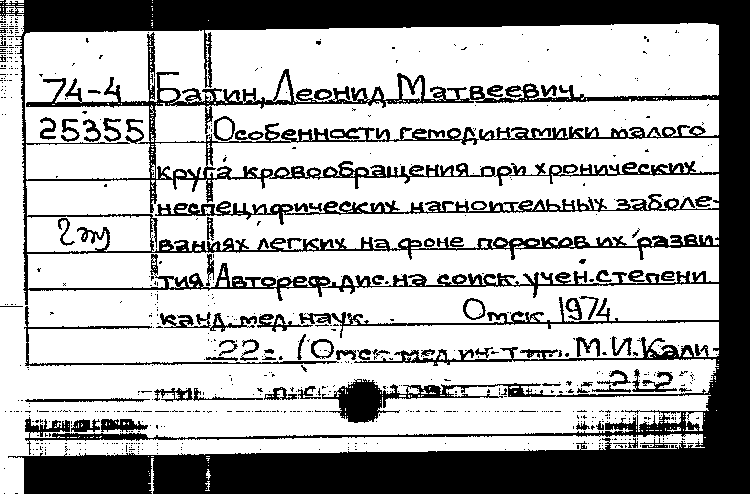 74-4 Батин, Леонид Матвеевич.
25355 Особенности гемодинамики малого
круга кровообращения при хронических
неспецифических нагноительных заболе-
2 эт ваниях легких на фоне пороков их разви-
тия. Автореф. дис. на соиск. учен. степени
канд. мед. наук. Омск, 1974.
22с. (Омск. мед. ин-т им. М.И. Кали-
21-2